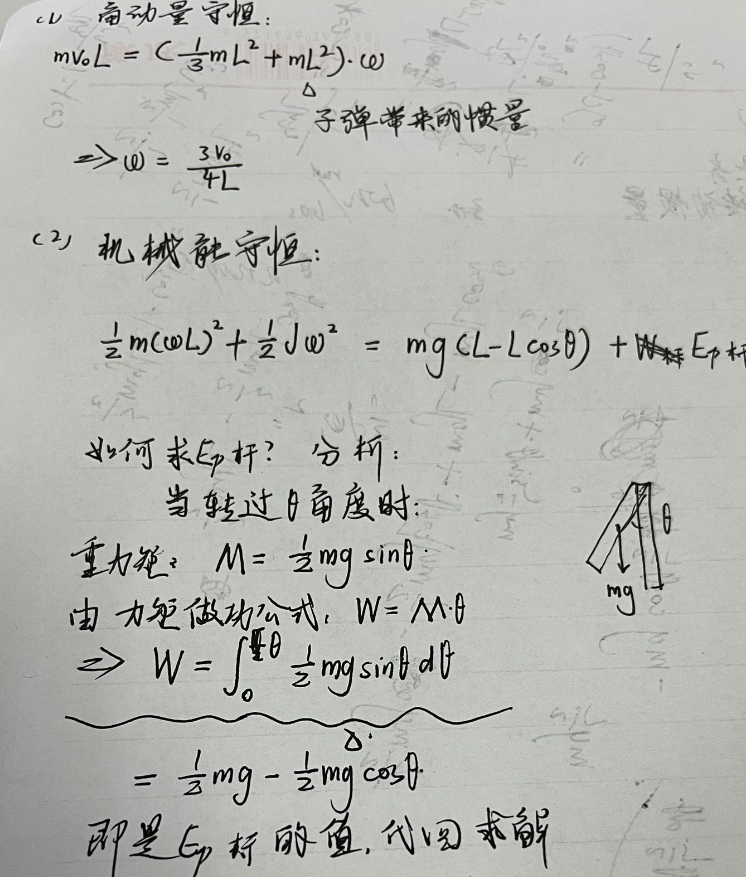 (1) 角动量守恒:
mv₀L = (1/3 mL² + mL²)·ω
△
子弹带来的惯量
=> ω = 3v₀/4L
(2) 机械能守恒:
1/2 m(ωL)² + 1/2 Jω² = mg(L-Lcosθ) + Ep杆
如何求Ep杆? 分析:
当转过θ角度时:
θ
重力矩: M = 1/2 mg sinθ.
mg
由力矩做功公式, W = M·θ
=> W = ∫₀^θ 1/2 mg sinθ dθ
△.
= 1/2 mg - 1/2 mg cosθ.
即是Ep杆的值,代回求解